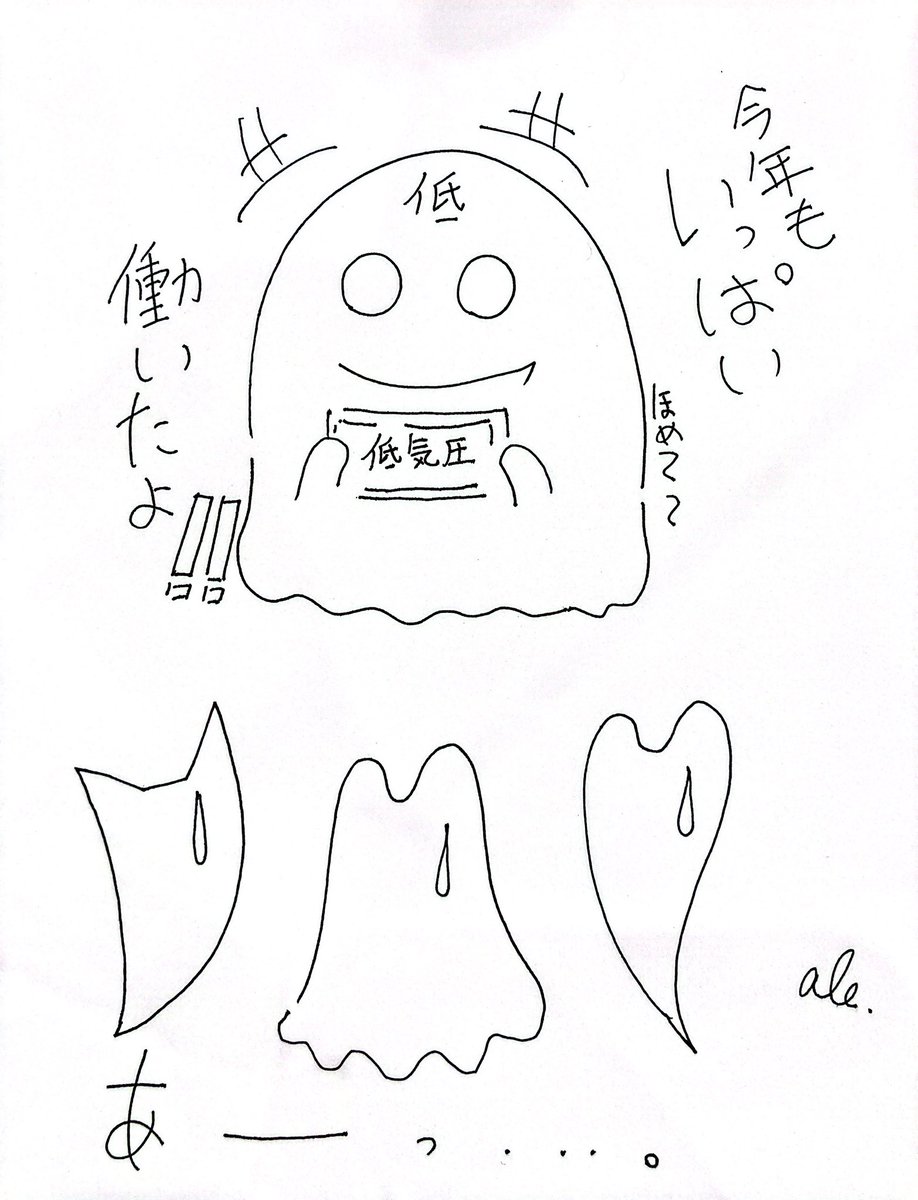 今年も
いっぱい
働いたよ!!
ほめてて
低
低気圧
あーっ・・・・。
ale.